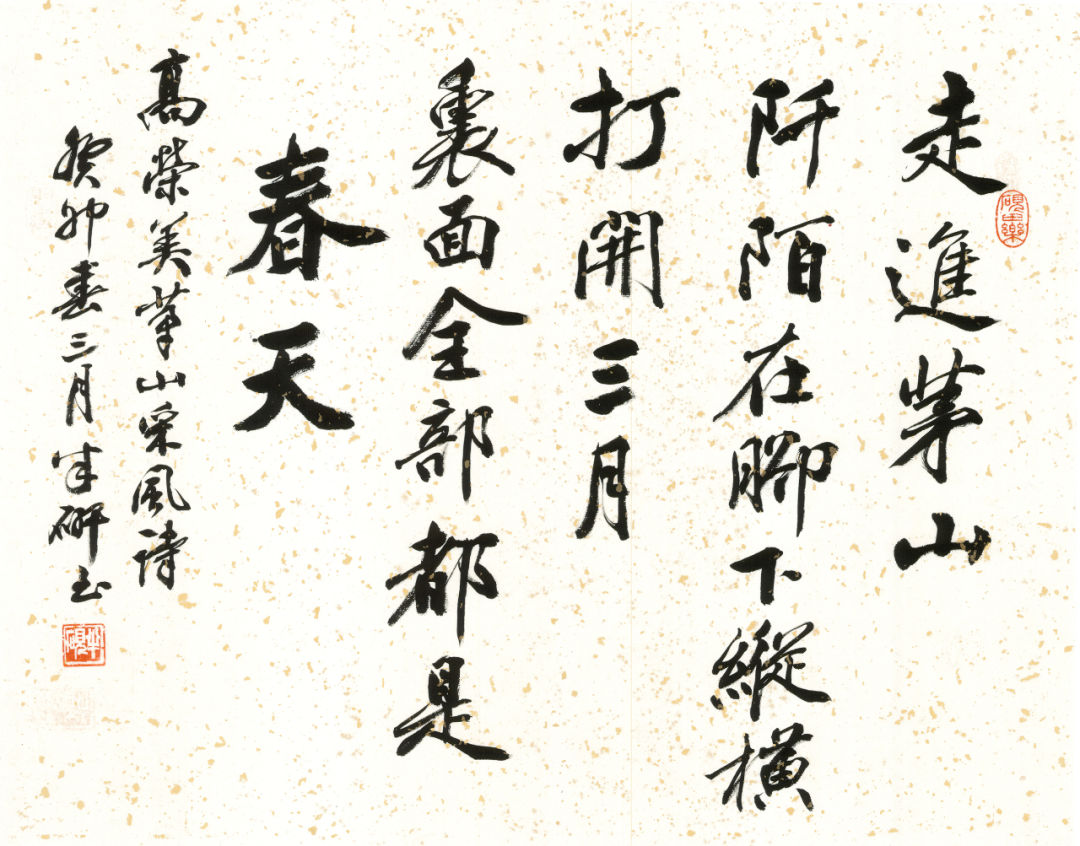 走進茅山
阡陌在腳下縱橫
打開三月
裏面全部都是
春天
高榮美茅山采風詩
癸卯春三月半硯書